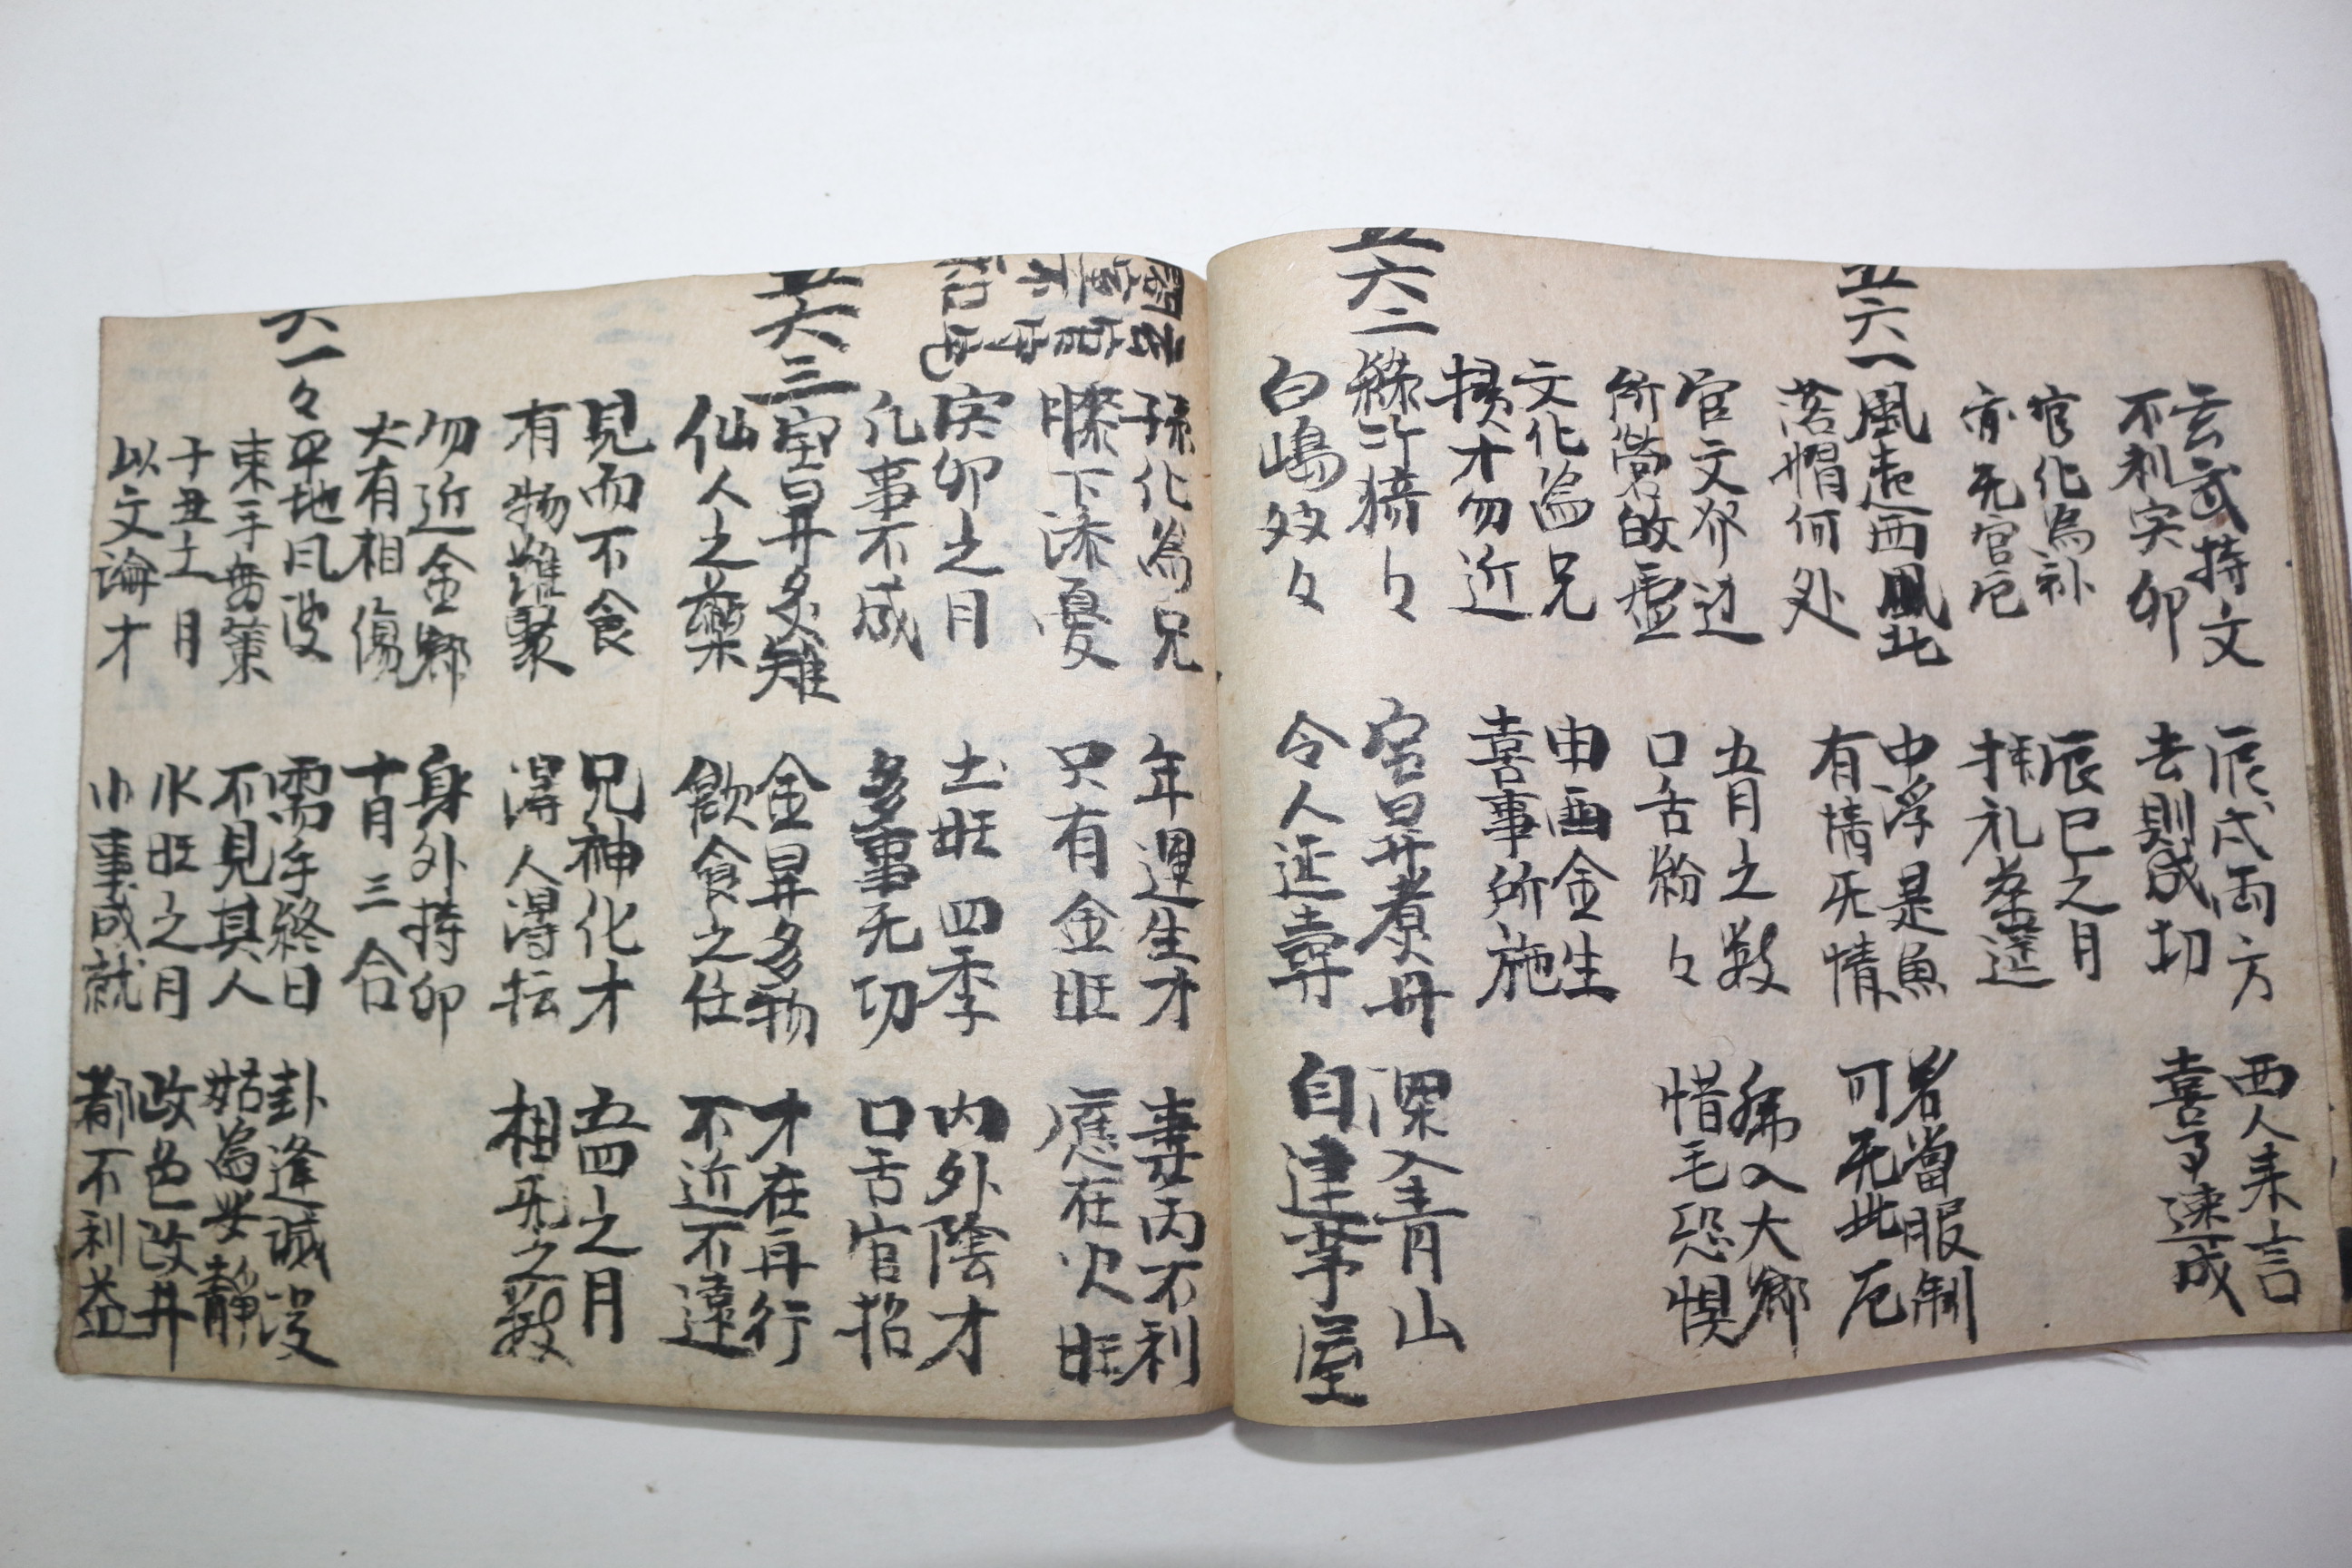 玄武持文 辰戌兩方 西人来言
不利寅卯 去則成切 喜事速成
官化為補 辰巳之月
亦无官厄
五六一 風遠西風北 中浮是魚 若當服制
落帽何处 有情无情 可无此厄
官文外边 五月之数 務入大鄉
所營的虛 口舌紛々 惜毛恐惧
文化為兄 申酉金生
損才勿近 喜事所施
五六二 綠竹猗々 宮昇煮丹 深入青山
白嶋效々 令人延壽 自建茅屋
孫化為兄 年運生才 妻丙不利
膝下添憂 只有金旺 應在火旺
寅卯之月 土旺四季 內外陰才
凡事不成 多事无功 口舌官招
五六三 宮昇多雉 金昇多物 才在再行
仙人之藥 飲食之仕 不近不遠
見而不食 兄神化才 五四之月
有物雖聚 得人得坛 相死之数
勿近金鄉 身外持卯
大有相傷 十月三合
六一々 平地风波 需字終日 卦逢诚沒
束手無策 不見其人 姑為安靜
十丑土月 水旺之月 改色改井
以文論才 小事成就 都不利益